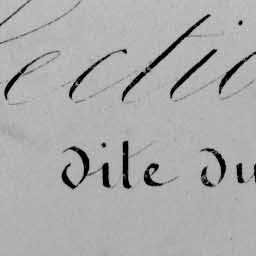 lectio
dite du